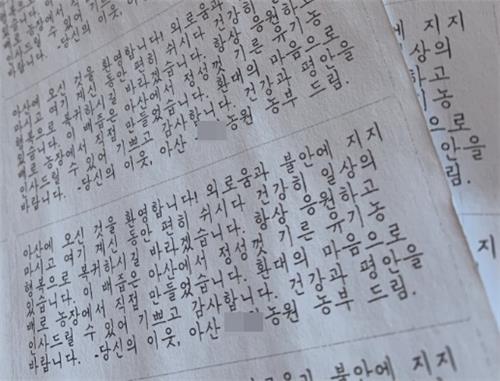 인사드릴 수 있어
바랍니다. -당신의 이웃,
아산에 오신 것을 환영합니다! 외로움과
마시고 여기 계신 동안 편히 쉬시다 건강히
행복으로 복귀하시길 바라겠습니다. 항상 응원하고
있습니다. 이 배즙은 아산에서 정성껏 기른 유기농
배로 농장에서 직접 만들었습니다. 환대의 마음으로
인사드릴 수 있어 기쁘고 감사합니다. 건강과 평안을
바랍니다. -당신의 이웃, 아산 농원 농부 드림.
지지
상의
하고
농
으로
안을
림.
아산에 오신 것을 환영합니다! 외로움과 불안에 지지
마시고 여기 계신 동안 편히 쉬시다 건강히 일상의
행복으로 복귀하시길 바라겠습니다. 항상 응원하고
있습니다. 이 배즙은 아산에서 정성껏 기른 유기농
배로 농장에서 직접 만들었습니다. 환대의 마음으로
인사드릴 수 있어 기쁘고 감사합니다. 건강과 평안을
바랍니다. -당신의 이웃, 아산 농원 농부 드림.
지
불안에 지지